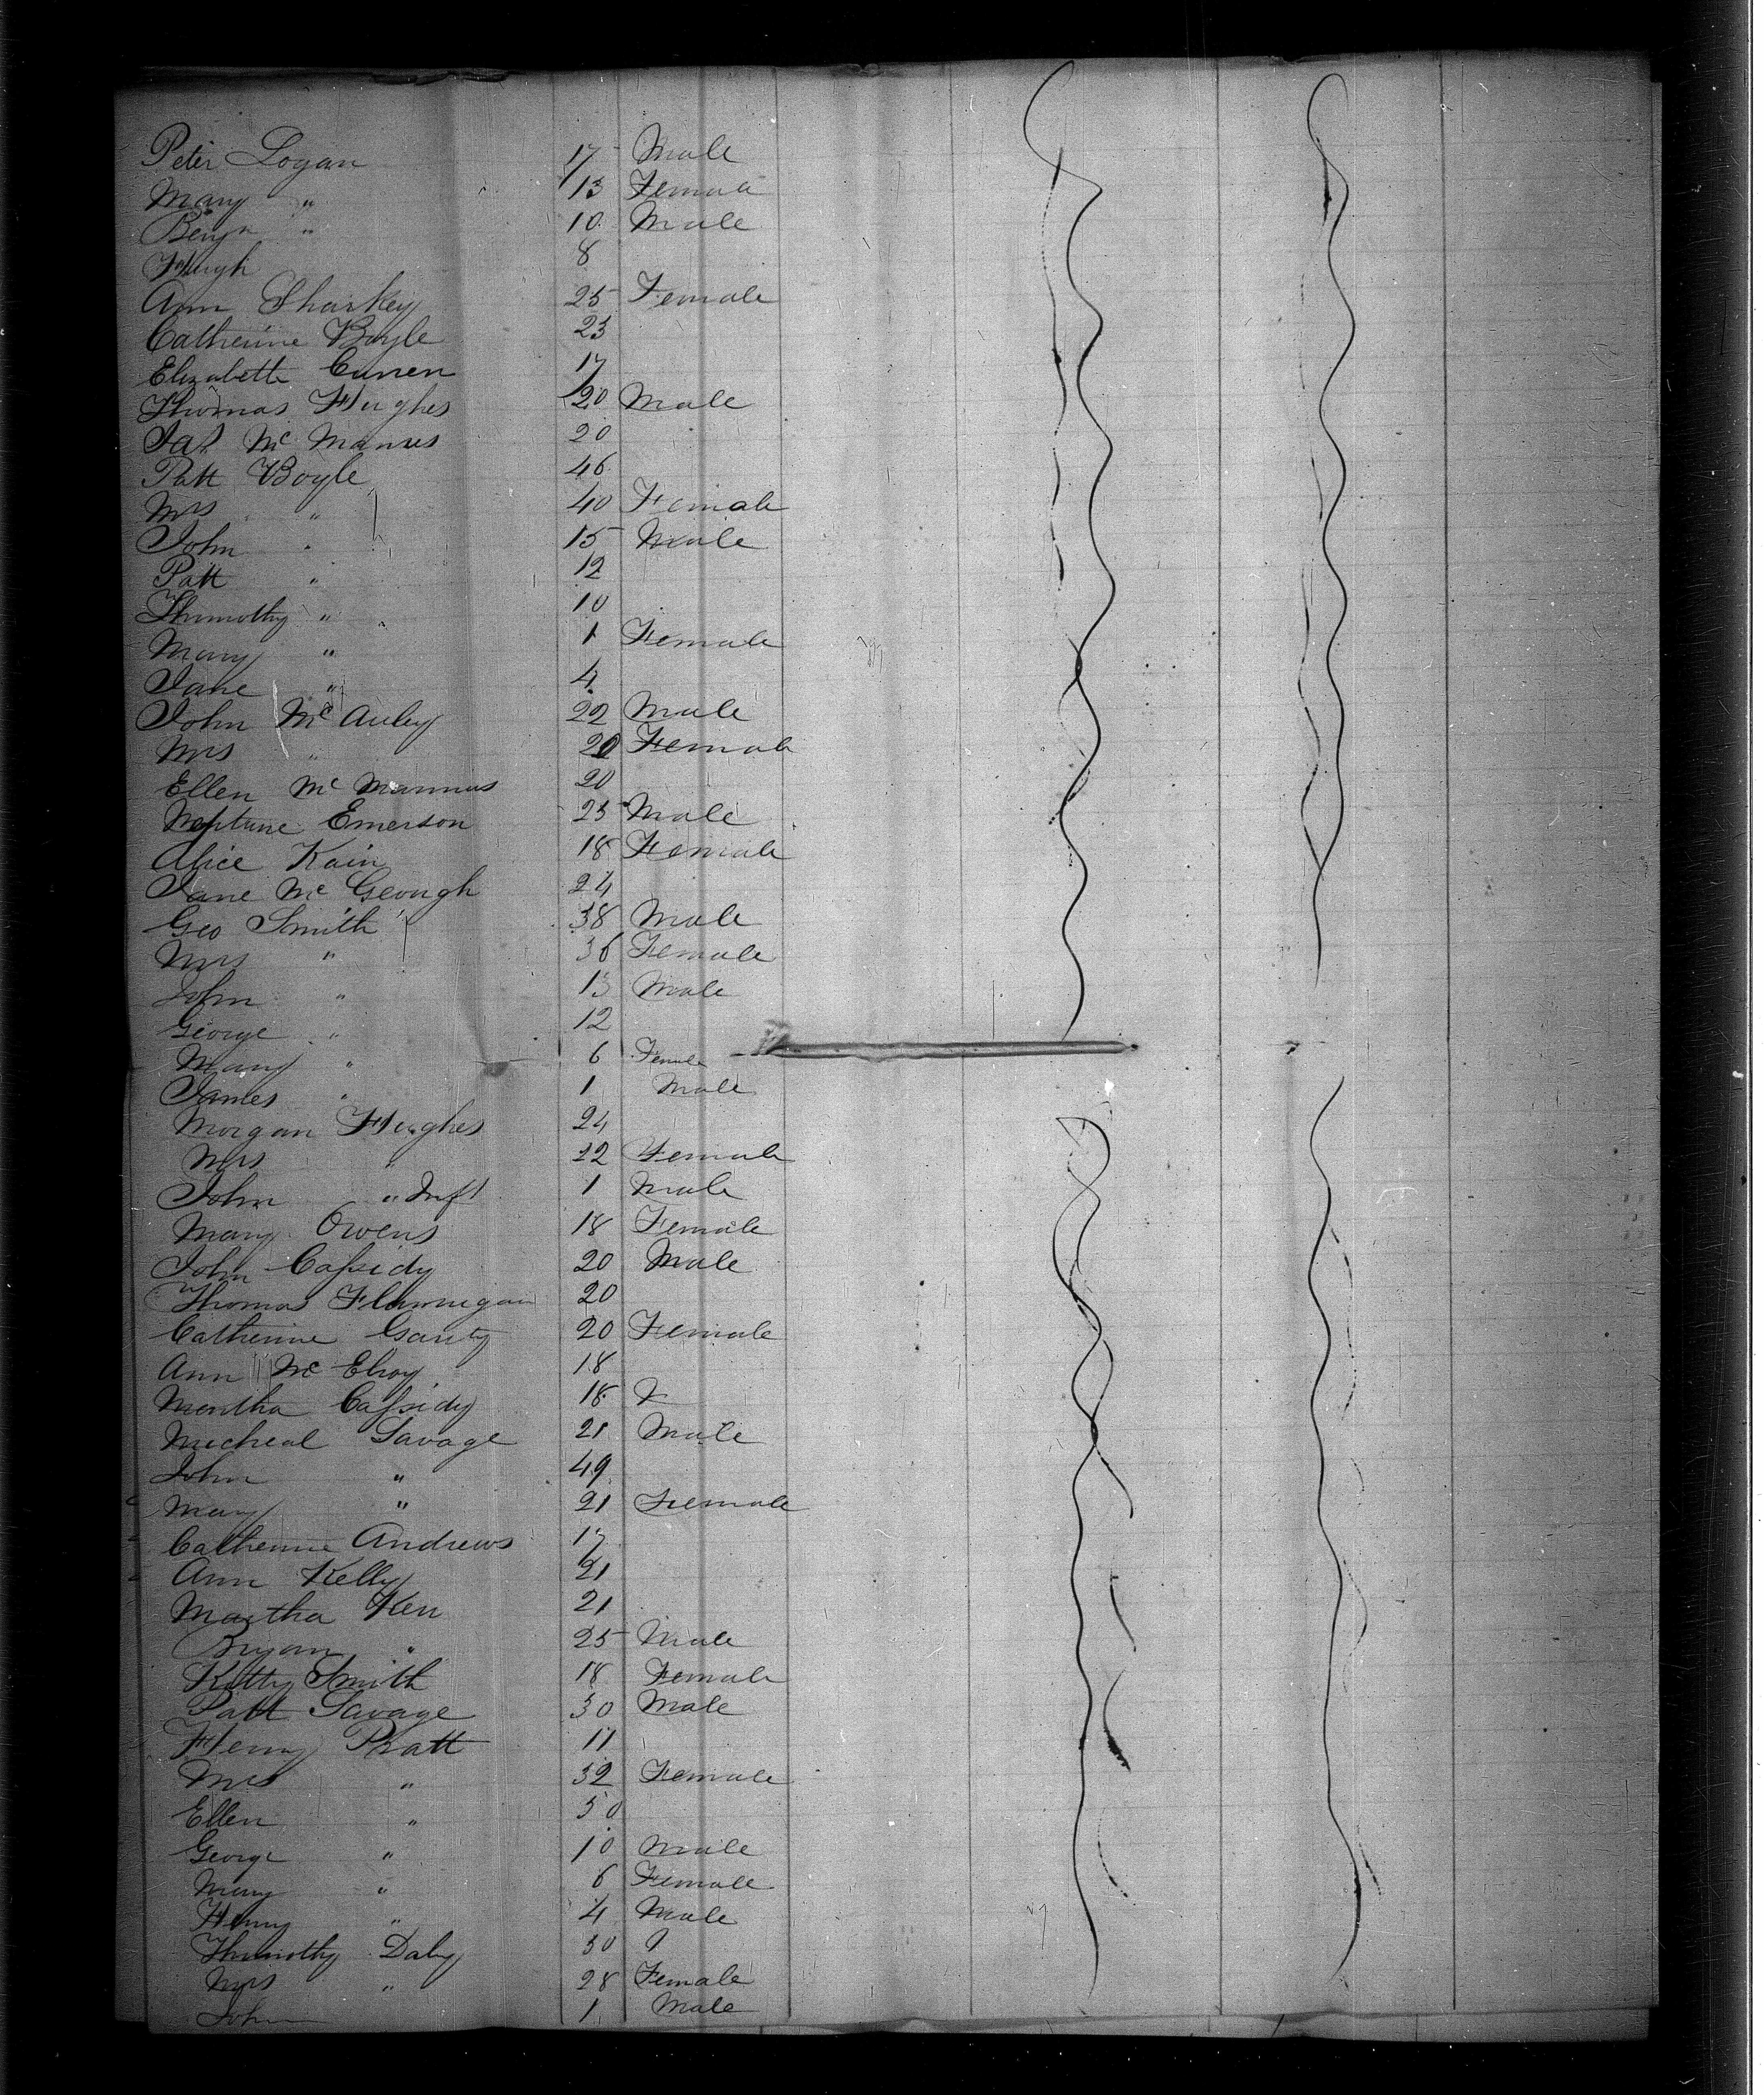 Peter Logan 17 Male
Mary " 13 Female
Benjn " 10 Male
Hugh 8
Ann Sharkey 25 Female
Catherine Boyle 23
Elizabeth Curren 17
Thomas Hughes 20 Male
Jas Mc Manus 20
Patt Boyle 46
Mrs " 40 Female
John " 15 Male
Patt " 12
Thimothy " 10
Mary " 1 Female
Jane " 4
John Mc Auley 22 Male
Mrs " 20 Female
Ellen Mc Mannus 20
Neptune Emerson 25 Male
Alice Kain 18 Female
Jane Mc Geough 24
Geo Smith 38 Male
Mrs " 36 Female
John " 13 Male
George " 12
Mary " 6 Female
James " 1 Male
Morgan Hughes 24
Mrs " 22 Female
John " Inft 1 Male
Mary Owens 18 Female
John Cassidy 20 Male
Thomas Flannigan 20
Catherine Garity 20 Female
Ann Mc Elroy 18
Martha Cassidy 18
Micheal Savage 21 Male
John " 49
Mary " 21 Female
Catherine Andrews 17
Ann Kelly 21
Martha Kerr 21
Bryan " 25 Male
Kitty Smith 18 Female
Patt Savage 30 Male
Henry Pratt 11
Mrs " 32 Female
Ellen " 50
George " 10 Male
Mary " 6 Female
Henry " 4 Male
Thimothy Daly 30
Mrs " 28 Female
John 1 Male